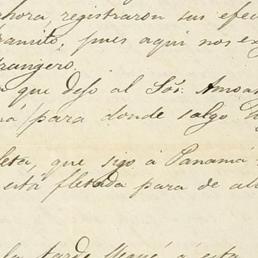 ahora, registraron sus efec
transito, pues aqui nos ex
trangero.
que dejó al Sõr. Amoa
á para donde salgo h
leta, que sigo á Panamá
está fletada para de al
la tarde llegué á esta